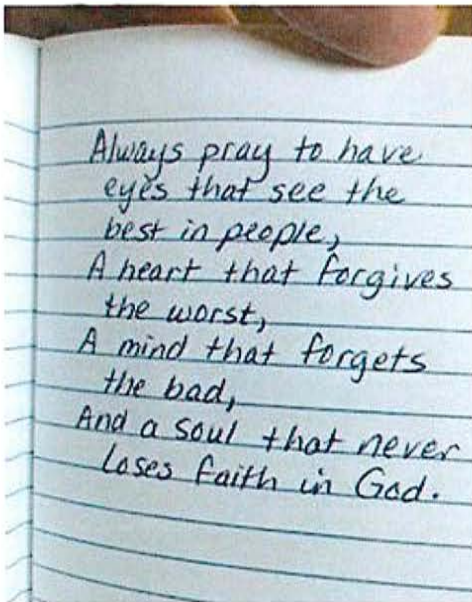 Always pray to have
eyes that see the
best in people,
A heart that forgives
the worst,
A mind that forgets
the bad,
And a soul that never
loses faith in God.